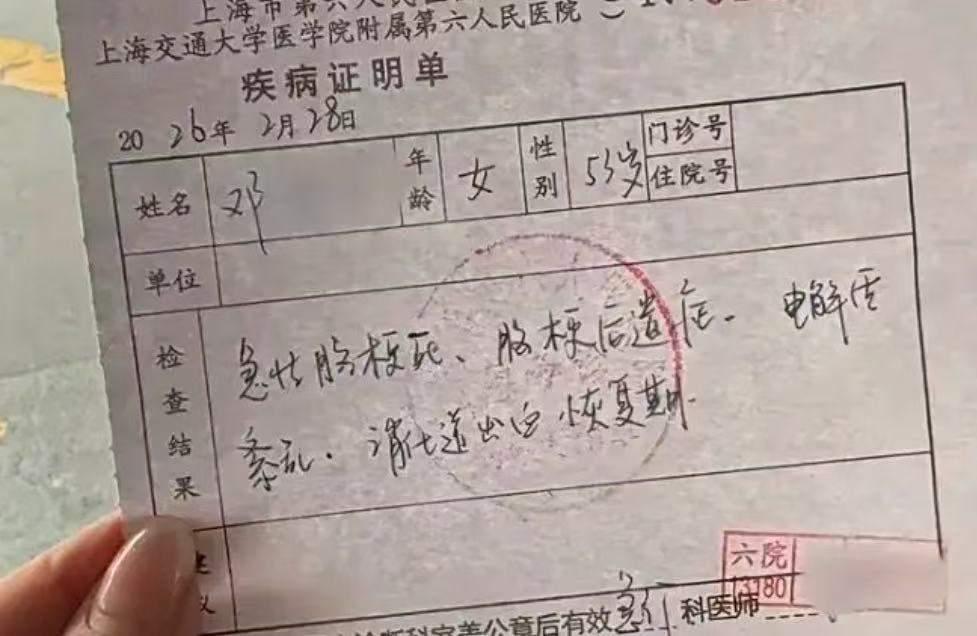 上海市第六人民医
上海交通大学医学院附属第六人民医院
疾病证明单
2026年2月28日
姓名 邓 年龄 女 性别 53岁 门诊号
住院号
单位
检查结果 急性脑梗死、脑梗后遗症、电解质
紊乱、消化道出血恢复期
六院
13180
科完善公章后有效 急 科医师